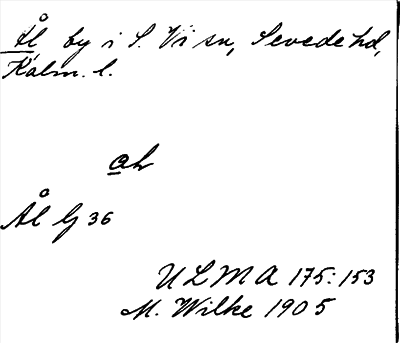 Ål, by i S. Vi sn, Sevede hd,
Kalm. l.
aL
Ål G 36
ULMA 175:153
M. Wilke 1905